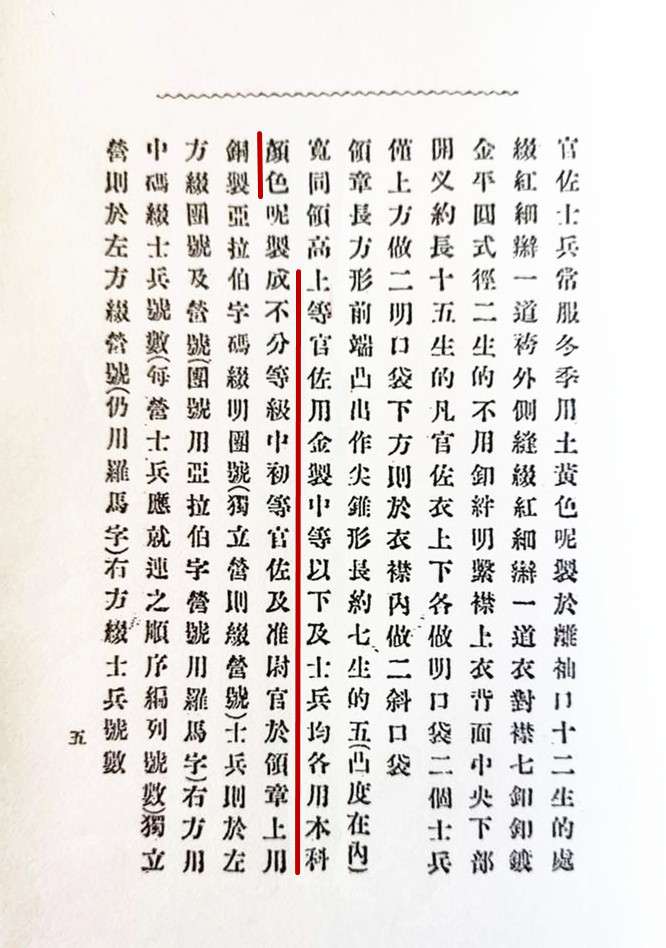 官佐士兵常服冬季用土黃色呢製於離袖口十二生的處
綴紅細辮一道袴外側縫綴紅細辮一道衣對襟七釦釦鍍
金平圓式徑二生的不用釦絆明繫襟上衣背面中央下部
開叉約長十五生的凡官佐衣上下各做明口袋二個士兵
僅上方做二明口袋下方則於衣襟內做二斜口袋
領章長方形前端凸出作尖錐形長約七生的五(凸度在內)
寬同領高上等官佐用金製中等以下及士兵均各用本科
顏色呢製成不分等級中初等官佐及准尉官於領章上用
銅製亞拉伯字碼綴明團號(獨立營則綴營號)士兵則於左
方綴團號及營號(團號用亞拉伯字營號用羅馬字)右方用
中碼綴士兵號數(每營士兵應就連之順序編列號數)獨立
營則於左方綴營號(仍用羅馬字)右方綴士兵號數
五